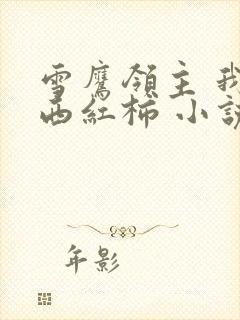 雪鷹領主 我
西紅柿 小說
年影